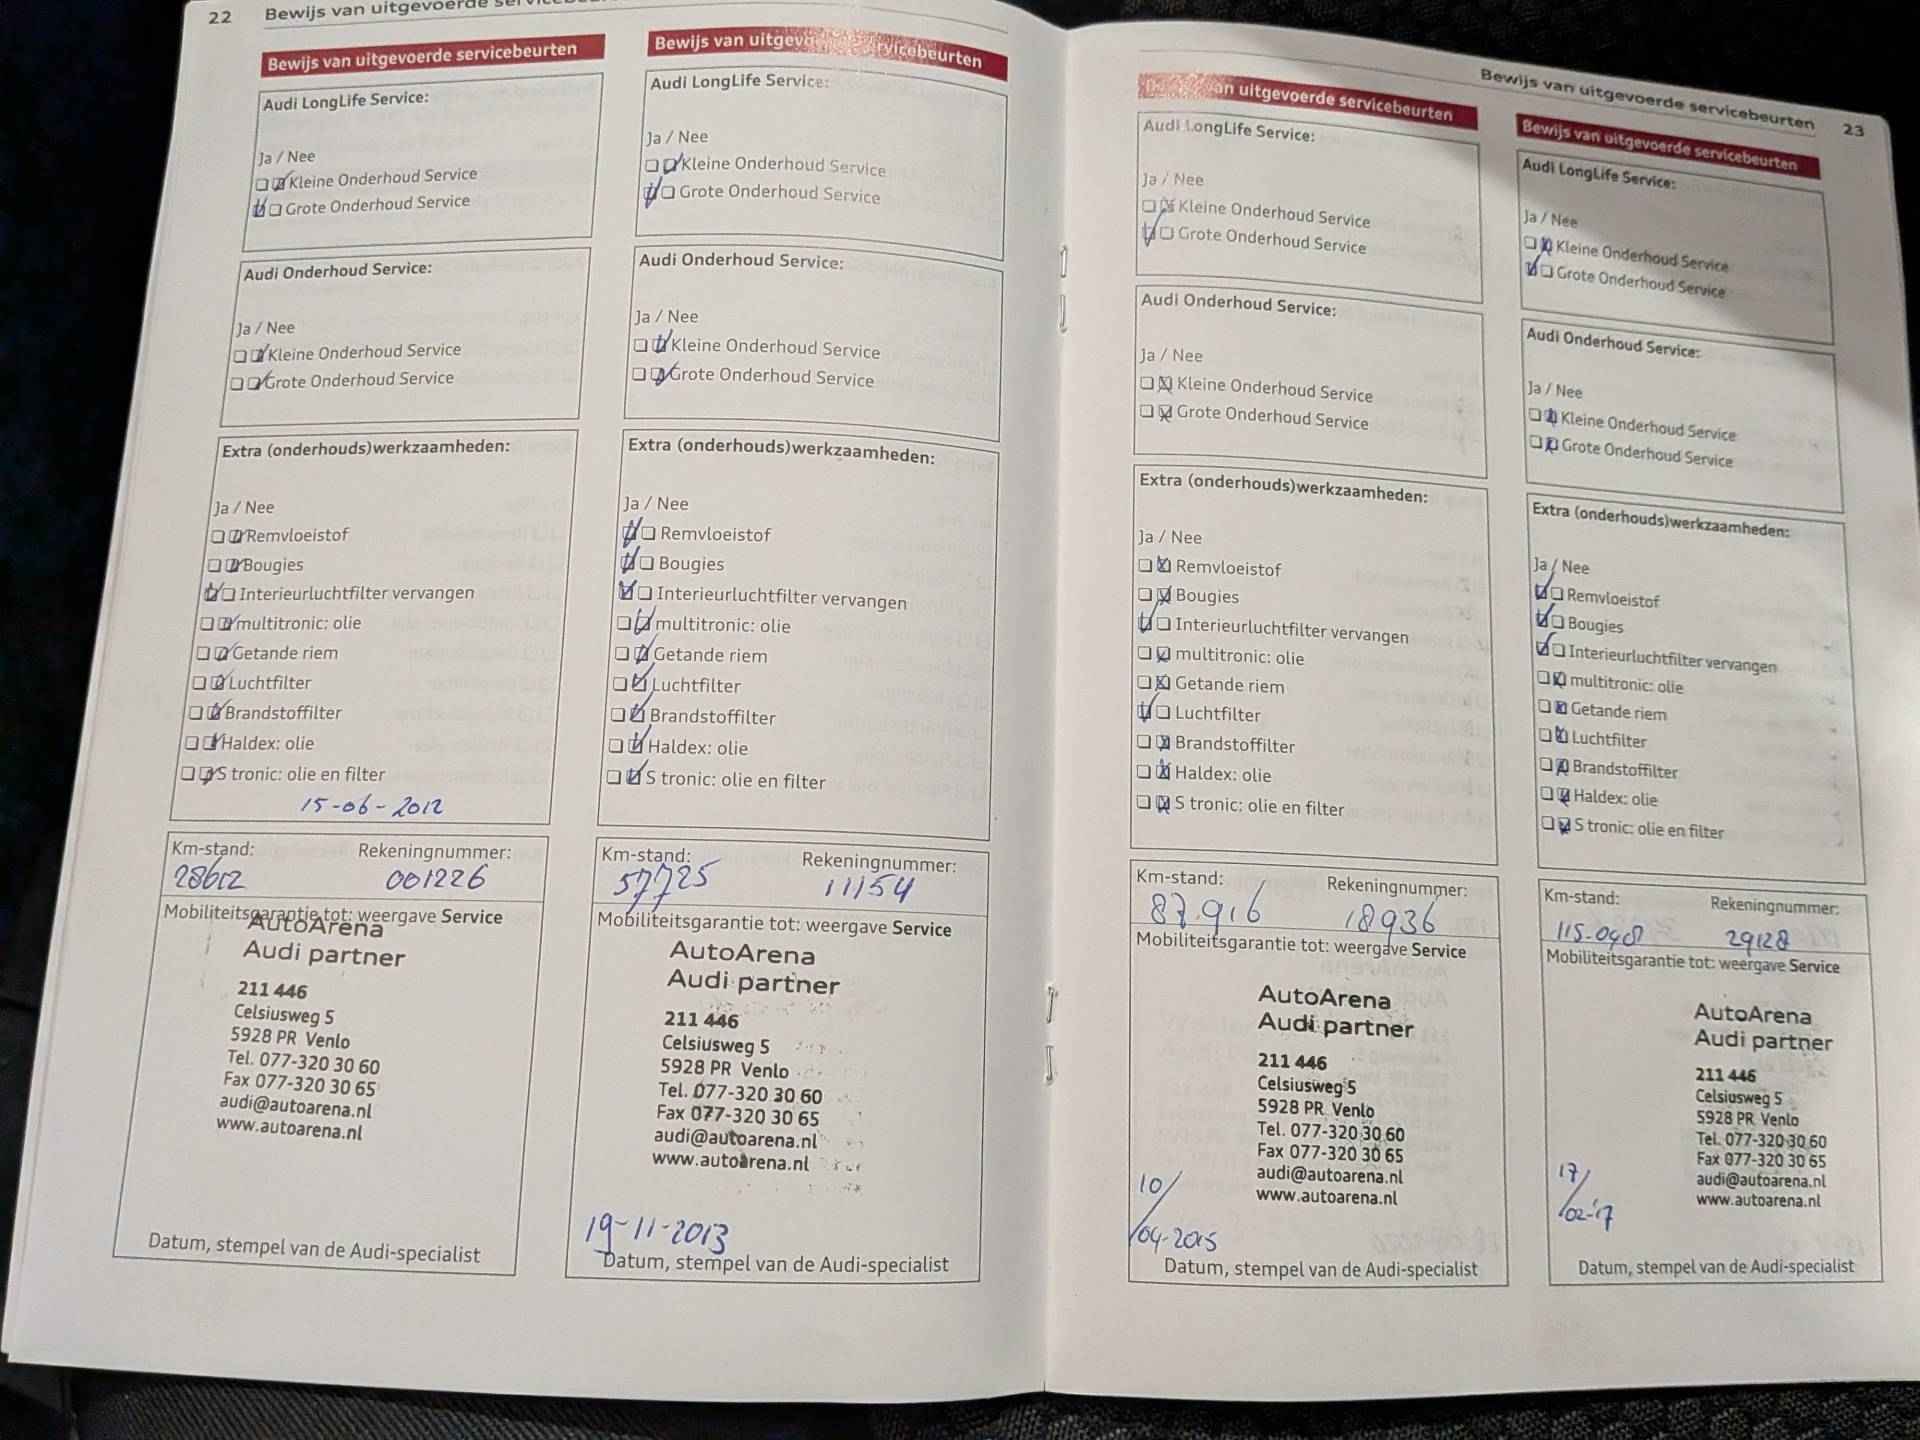 22 Bewijs van uitgevoerde servicebeurten
Bewijs van uitgevoerde servicebeurten
Audi LongLife Service:
Ja / Nee
Kleine Onderhoud Service
Grote Onderhoud Service
Audi Onderhoud Service:
Ja / Nee
Kleine Onderhoud Service
Grote Onderhoud Service
Extra (onderhouds)werkzaamheden:
Ja / Nee
Remvloeistof
Bougies
Interieurluchtfilter vervangen
multitronic: olie
Getande riem
Luchtfilter
Brandstoffilter
Haldex: olie
S tronic: olie en filter
15-06-2012
Km-stand: Rekeningnummer:
28612 001226
Mobiliteitsgarantie tot: weergave Service
AutoArena
Audi partner
211 446
Celsiusweg 5
5928 PR Venlo
Tel. 077-320 30 60
Fax 077-320 30 65
audi@autoarena.nl
www.autoarena.nl
Datum, stempel van de Audi-specialist
Bewijs van uitgevoerde servicebeurten
Audi LongLife Service:
Ja / Nee
Kleine Onderhoud Service
Grote Onderhoud Service
Audi Onderhoud Service:
Ja / Nee
Kleine Onderhoud Service
Grote Onderhoud Service
Extra (onderhouds)werkzaamheden:
Ja / Nee
Remvloeistof
Bougies
Interieurluchtfilter vervangen
multitronic: olie
Getande riem
Luchtfilter
Brandstoffilter
Haldex: olie
S tronic: olie en filter
Km-stand: Rekeningnummer:
57725 11154
Mobiliteitsgarantie tot: weergave Service
AutoArena
Audi partner
211 446
Celsiusweg 5
5928 PR Venlo
Tel. 077-320 30 60
Fax 077-320 30 65
audi@autoarena.nl
www.autoarena.nl
19-11-2013
Datum, stempel van de Audi-specialist
Bewijs van uitgevoerde servicebeurten 23
van uitgevoerde servicebeurten
Audi LongLife Service:
Ja / Nee
Kleine Onderhoud Service
Grote Onderhoud Service
Audi Onderhoud Service:
Ja / Nee
Kleine Onderhoud Service
Grote Onderhoud Service
Extra (onderhouds)werkzaamheden:
Ja / Nee
Remvloeistof
Bougies
Interieurluchtfilter vervangen
multitronic: olie
Getande riem
Luchtfilter
Brandstoffilter
Haldex: olie
S tronic: olie en filter
Km-stand: Rekeningnummer:
87.916 18936
Mobiliteitsgarantie tot: weergave Service
AutoArena
Audi partner
211 446
Celsiusweg 5
5928 PR Venlo
Tel. 077-320 30 60
Fax 077-320 30 65
audi@autoarena.nl
www.autoarena.nl
10/
/04-2015
Datum, stempel van de Audi-specialist
Bewijs van uitgevoerde servicebeurten
Audi LongLife Service:
Ja / Nee
Kleine Onderhoud Service
Grote Onderhoud Service
Audi Onderhoud Service:
Ja / Nee
Kleine Onderhoud Service
Grote Onderhoud Service
Extra (onderhouds)werkzaamheden:
Ja / Nee
Remvloeistof
Bougies
Interieurluchtfilter vervangen
multitronic: olie
Getande riem
Luchtfilter
Brandstoffilter
Haldex: olie
S tronic: olie en filter
Km-stand: Rekeningnummer:
29128
Mobiliteitsgarantie tot: weergave Service
AutoArena
Audi partner
211 446
Celsiusweg 5
5928 PR Venlo
Tel. 077-320 30 60
Fax 077-320 30 65
audi@autoarena.nl
www.autoarena.nl
17/
/02-'17
Datum, stempel van de Audi-specialist